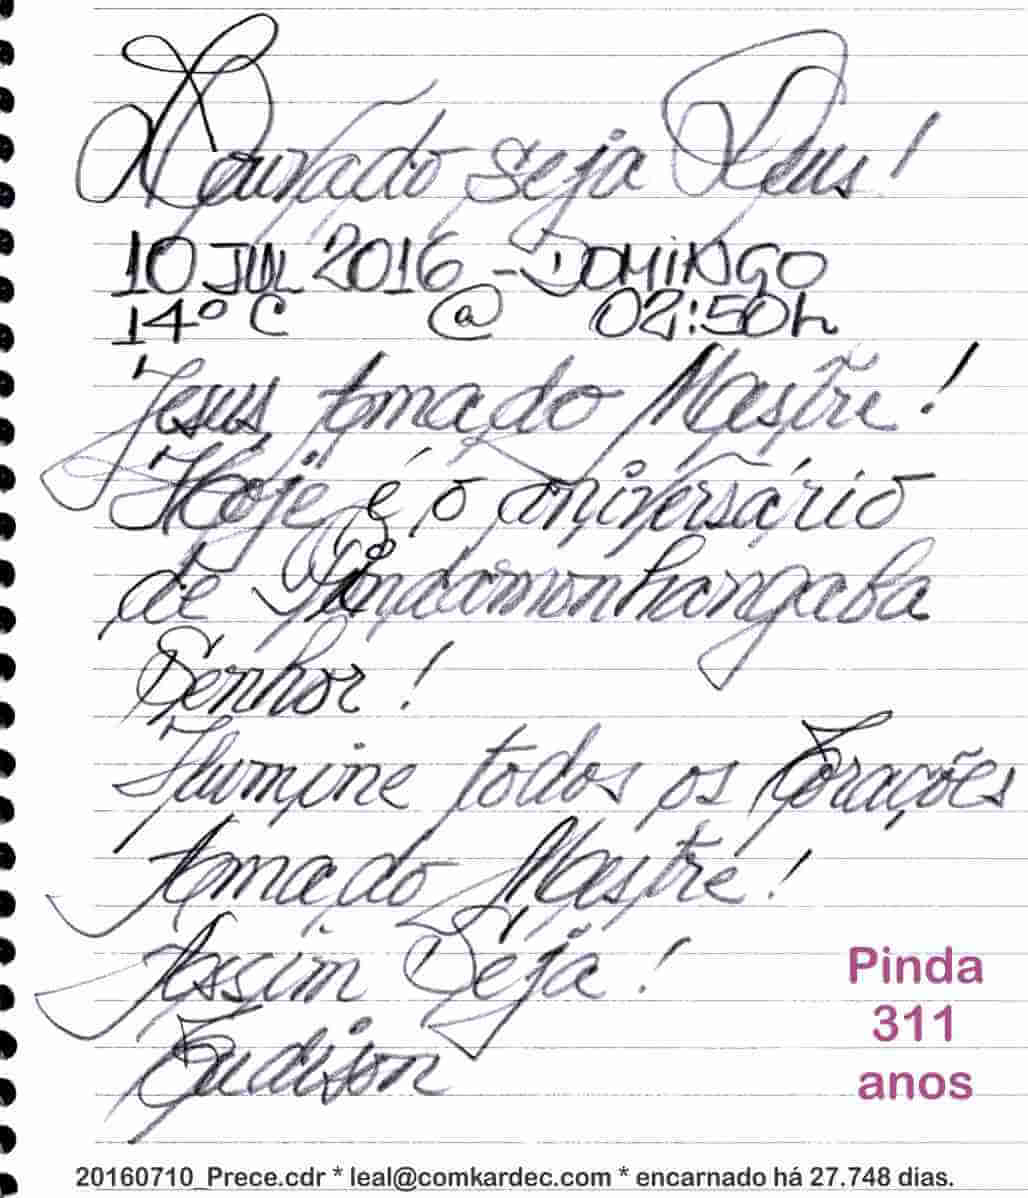 Louvado seja Deus!
10 JUL 2016 - DOMINGO
14º C @ 02:50h
Jesus, amado Mestre!
Hoje é o aniversário
de Pindamonhangaba
Senhor!
Ilumine todos os Corações
Amado Mestre!
Assim Seja!
Eudison
Pinda
311
anos
20160710_Prece.cdr * leal@comkardec.com * encarnado há 27.748 dias.